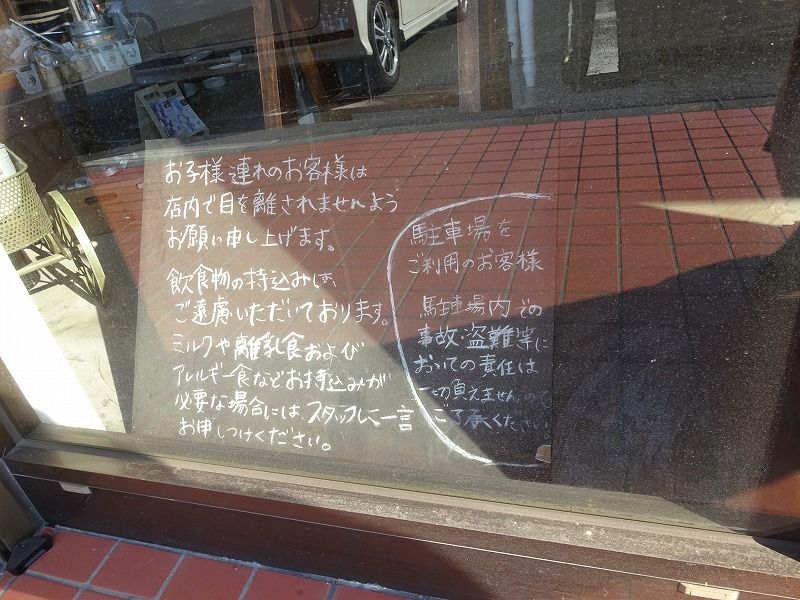 お子様連れのお客様は
店内で目を離されませんよう
お願い申し上げます。
飲食物の持込みは、
ご遠慮いただいております。
ミルクや離乳食および
アレルギー食などお持込みが
必要な場合には、スタッフに一言
お申しつけください。
駐車場を
ご利用のお客様
駐車場内での
事故・盗難等に
おいての責任は
一切負えませんので
ご了承ください